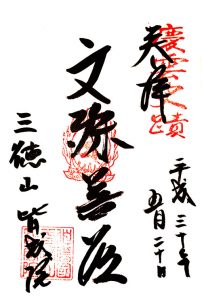 慶雲之蹟
奉拝
平成三十年
五月二十日
文殊菩薩
三徳山 皆成院